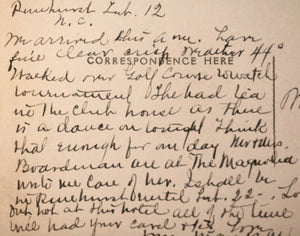 Pinehurst Feb. 12
N.C.
We arrived this a.m. have
fine clear crisp weather 44°
CORRESPONDENCE HERE
Walked over Golf Course to watch
tournament & had tea
in the Club house as there
is a dance on tonight I think
that enough for one day
Boardman are at The Magnolia
write me care of her. I shall be
in Pinehurst until Feb. 22 -
but not at this hotel all of the time
well had your card